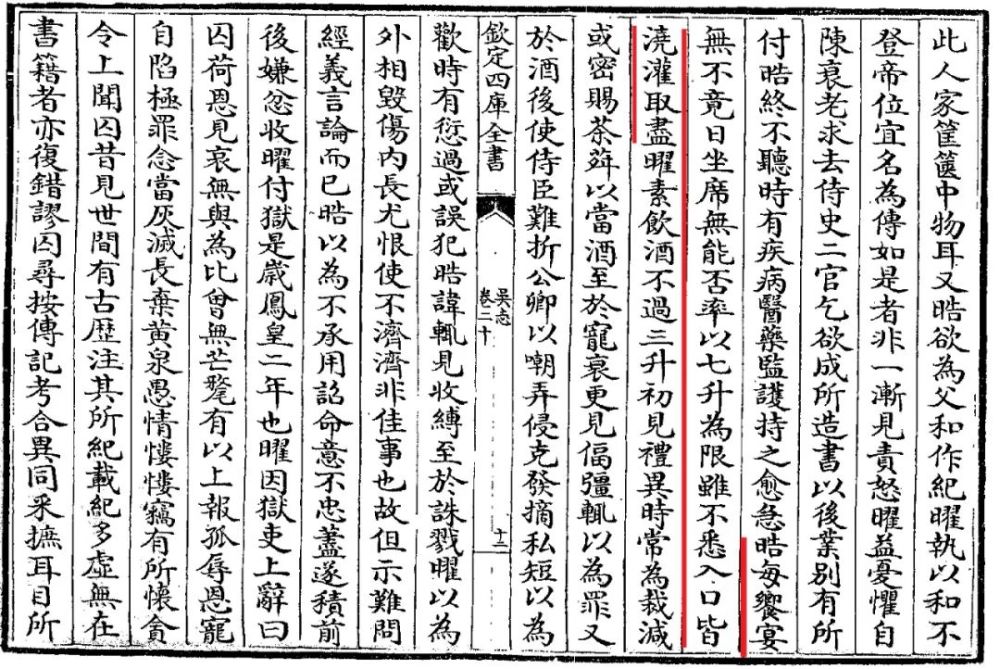 此人家筐篋中物耳又皓欲為父和作紀曜執以和不
登帝位宜名為傳如是者非一漸見責怒曜益憂懼自
陳衰老求去侍史二官乞欲成所造書以後業别有所
付皓終不聽時有疾病醫藥監護持之愈急皓每饗宴
無不竟日坐席無能否率以七升為限雖不悉入口皆
澆灌取盡曜素飲酒不過三升初見禮異時常為裁減
或密賜茶荈以當酒至於寵衰更見偪彊輒以為罪又
於酒後使侍臣難折公卿以嘲弄侵克發摘私短以為
欽定四庫全書
吳志
卷二十
十二
歡時有愆過或誤犯皓諱輒見收縛至於誅戮曜以為
外相毀傷内長尤恨使不濟濟非佳事也故但示難問
經義言論而已皓以為不承用詔命意不忠蓋遂積前
後嫌忿收曜付獄是歲鳳皇二年也曜因獄吏上辭曰
囚荷恩見哀無與為比曾無芒氂有以上報孤辱恩寵
自陷極罪念當灰滅長棄黄泉愚情慺慺竊有所懷貪
令上聞囚昔見世間有古歷注其所紀載紀多虛無在
書籍者亦復錯謬囚尋按傳記考合異同采摭耳目所